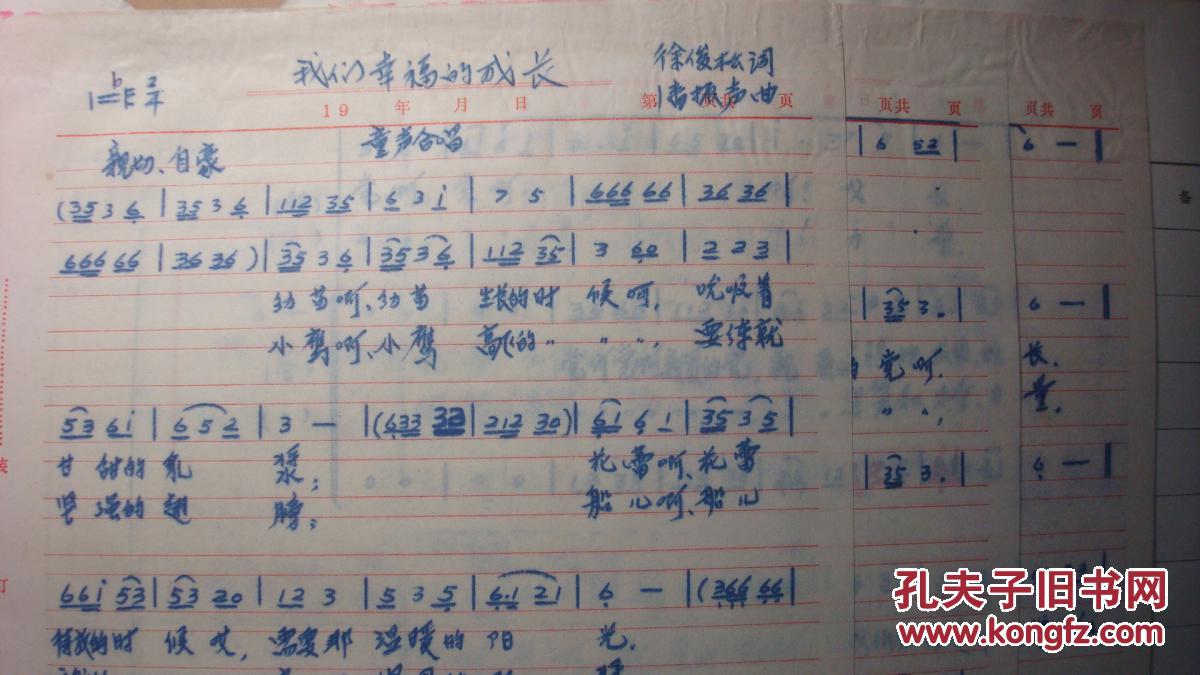 我们幸福的成长
徐俊松词
1=bE 2/4
潘振声曲
19 年 月 日
第 页共 页
页共 页
页共 页
童声合唱
亲切、自豪
6 52 |
6 — |
(35 3 6 | 35 3 6 | 112 35 | 6 3 i | 7 5 | 666 66 | 36 36 |
666 66 | 36 36) | 35 3 6 | 35 3 6 | 112 35 | 3 60 | 2 2 3 |
幼苗啊、幼苗 生长的时候啊, 吮吸着
小鹰啊、小鹰 高飞的〃 〃 〃, 要练就
35 3. |
6 — |
党啊.
长.
〃 〃,
量.
53 6i | 6 5 2 | 3 — | (633 33 | 212 30) | 61 6 1 | 35 3 5 |
甘甜的乳 浆; 花蕾啊、花蕾
坚强的翅 膀; 船儿啊、船儿
35 3. |
6 — |
66i 53 | 53 20 | 12 3 | 5 3 5 | 6.1 21 | 6 — | (366 66 |
待放的时候哎, 需要那温暖的阳 光.
备
订
孔夫子旧书网
www.kongfz.com